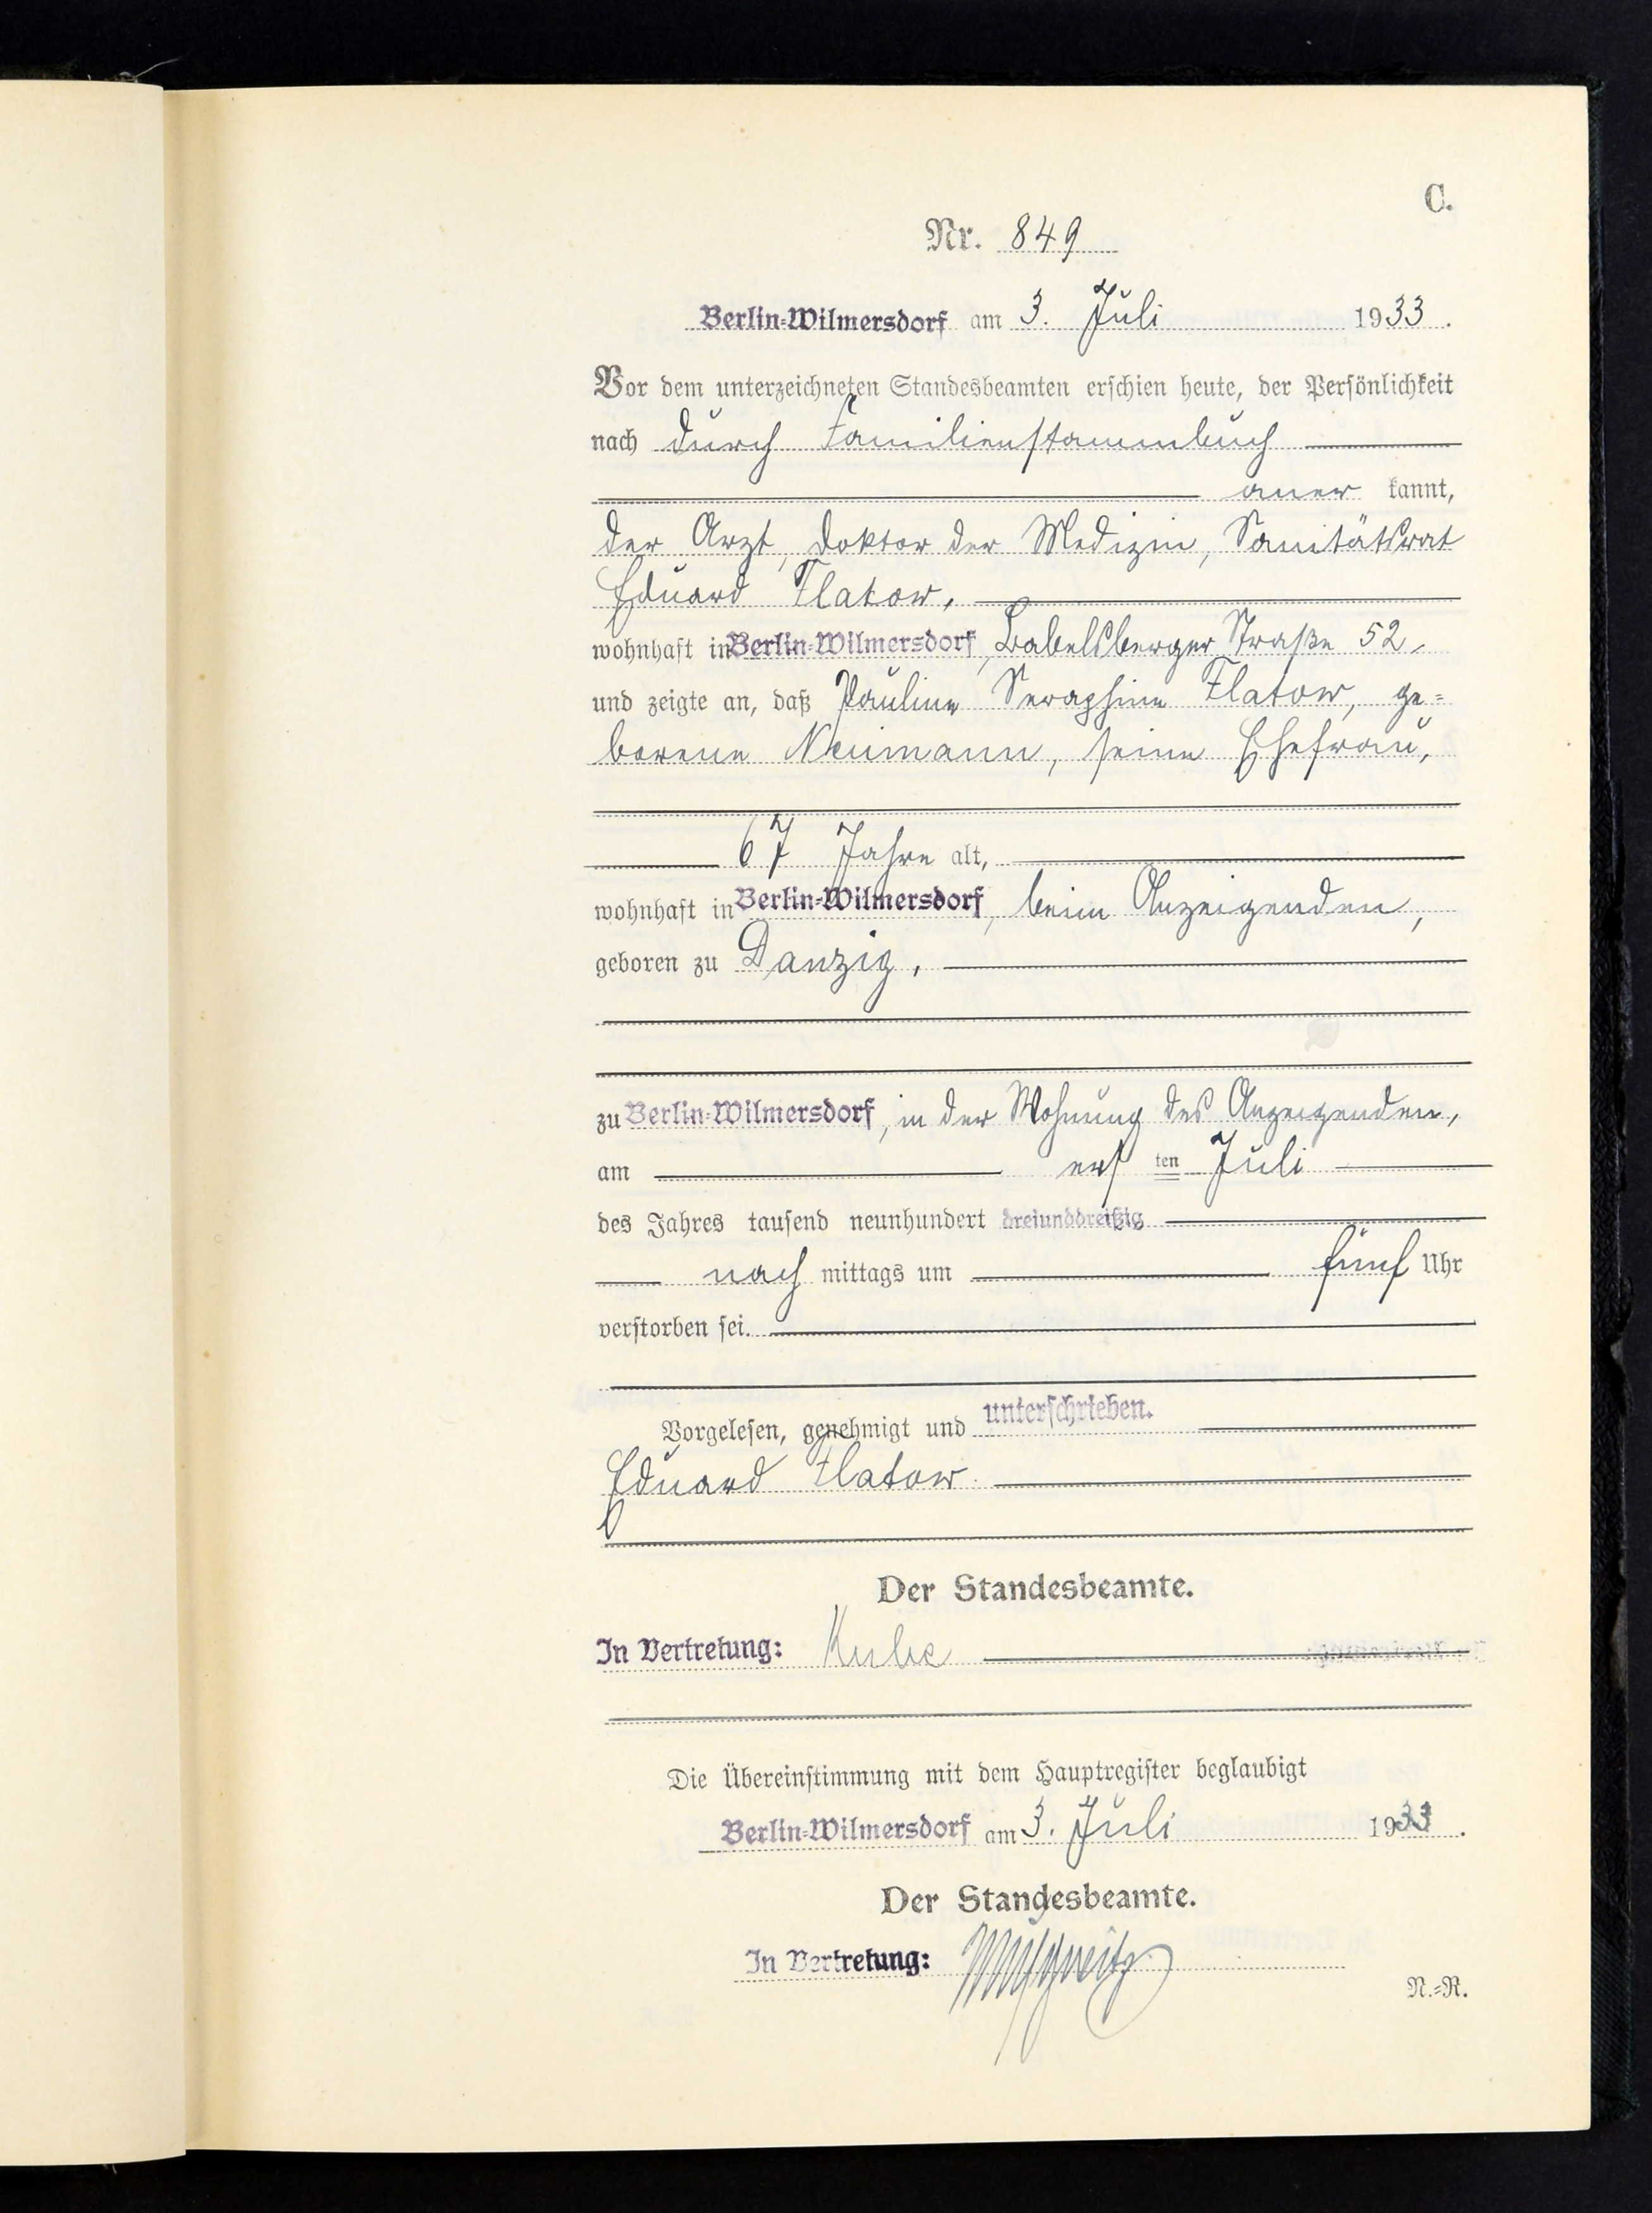 C.
Nr. 849
Berlin-Wilmersdorf am 3. Juli 1933.
Vor dem unterzeichneten Standesbeamten erschien heute, der Persönlichkeit
nach durch Familienstammbuch
aner kannt,
der Arzt, Doktor der Medizin, Sanitätsrat
Eduard Flatow,
wohnhaft in Berlin-Wilmersdorf, Babelsberger Straße 52,
und zeigte an, daß Pauline Seraphine Flatow, ge=
borene Neumann, seine Ehefrau,
67 Jahre alt,
wohnhaft in Berlin-Wilmersdorf, beim Anzeigenden,
geboren zu Danzig,
zu Berlin-Wilmersdorf, in der Wohnung des Anzeigenden,
am ersten Juli
des Jahres tausend neunhundert dreiunddreißig
nach mittags um fünf Uhr
verstorben sei.
Vorgelesen, genehmigt und unterschrieben.
Eduard Flatow
Der Standesbeamte.
In Vertretung: Kube
Die Übereinstimmung mit dem Hauptregister beglaubigt
Berlin-Wilmersdorf am 3. Juli 1933.
Der Standesbeamte.
In Vertretung:
N.=R.